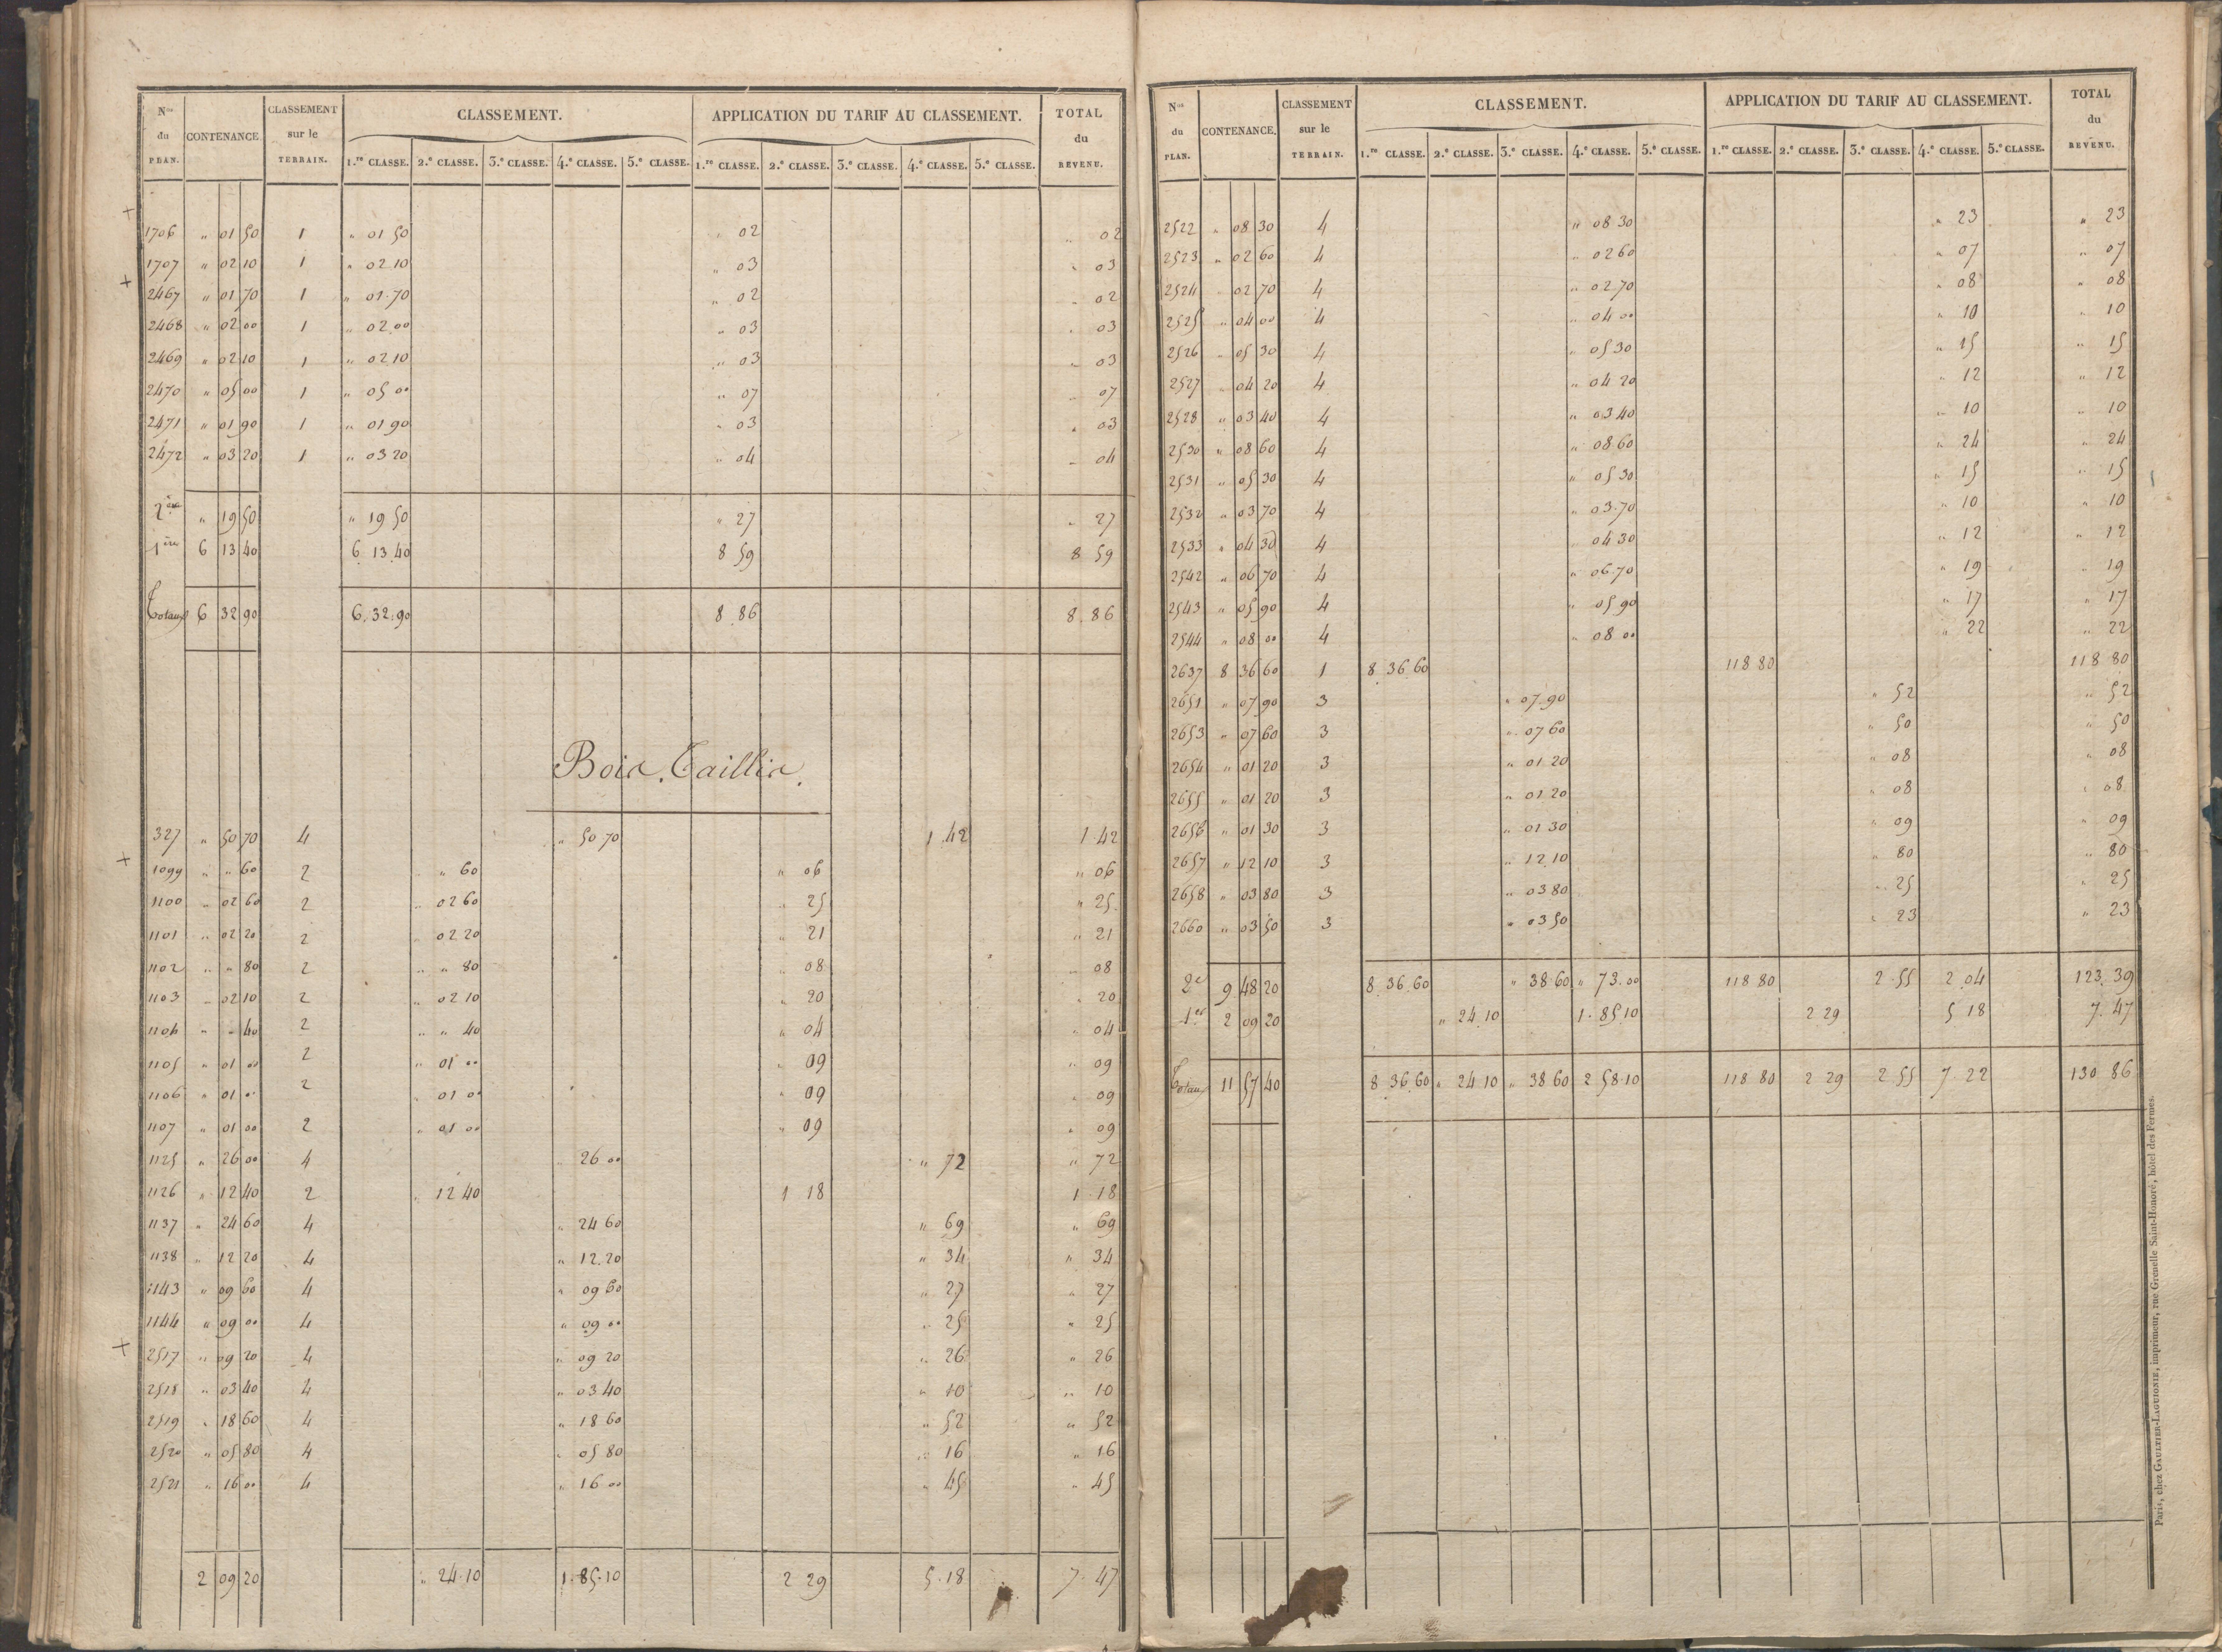 Nos du PLAN. CONTENANCE. CLASSEMENT sur le TERRAIN. CLASSEMENT. APPLICATION DU TARIF AU CLASSEMENT. TOTAL du REVENU.
1.re CLASSE. 2.e CLASSE. 3.e CLASSE. 4.e CLASSE. 5.e CLASSE. 1.re CLASSE. 2.e CLASSE. 3.e CLASSE. 4.e CLASSE. 5.e CLASSE.
1706 " 01 50 1 " 01 50 " 02 " 02
1707 " 02 10 1 " 02 10 " 03 " 03
2467 " 01 70 1 " 01.70 " 02 " 02
2468 " 02 00 1 " 02 00 " 03 " 03
2469 " 02 10 1 " 02 10 " 03 " 03
2470 " 05 00 1 " 05 00 " 07 " 07
2471 " 01 90 1 " 01 90 " 03 " 03
2472 " 03 20 1 " 03 20 " 04 " 04
2ème " 19 50 " 19 50 " 27 " 27
1ère 6 13 40 6 13 40 8 59 8 59
Totaux 6 32 90 6.32.90 8.86 8.86
Bois Taillis.
327 " 50 70 4 " 50 70 1.42 1.42
1099 " " 60 2 " " 60 " 06 " 06
1100 " 02 60 2 " 02 60 " 25 " 25
1101 " 02 20 2 " 02 20 " 21 " 21
1102 " " 80 2 " " 80 " 08 " 08
1103 " 02 10 2 " 02 10 " 20 " 20
1104 " " 40 2 " " 40 " 04 " 04
1105 " 01 00 2 " 01 00 " 09 " 09
1106 " 01 00 2 " 01 00 " 09 " 09
1107 " 01 00 2 " 01 00 " 09 " 09
1125 " 26 00 4 " 26 00 " 72 " 72
1126 " 12 40 2 " 12 40 1 18 1.18
1137 " 24 60 4 " 24 60 " 69 " 69
1138 " 12 20 4 " 12.20 " 34 " 34
1143 " 09 60 4 " 09 60 " 27 " 27
1144 " 09 00 4 " 09 00 " 25 " 25
2517 " 09 20 4 " 09 20 " 26 " 26
2518 " 03 40 4 " 03 40 " 10 " 10
2519 " 18 60 4 " 18 60 " 52 " 52
2520 " 05 80 4 " 05 80 " 16 " 16
2521 " 16 00 4 " 16 00 " 45 " 45
2 09 20 " 24.10 1.85.10 2 29 5.18 7.47
Nos du PLAN. CONTENANCE. CLASSEMENT sur le TERRAIN. CLASSEMENT. APPLICATION DU TARIF AU CLASSEMENT. TOTAL du REVENU.
1.re CLASSE. 2.e CLASSE. 3.e CLASSE. 4.e CLASSE. 5.e CLASSE. 1.re CLASSE. 2.e CLASSE. 3.e CLASSE. 4.e CLASSE. 5.e CLASSE.
2522 " 08 30 4 " 08 30 " 23 " 23
2523 " 02 60 4 " 02 60 " 07 " 07
2524 " 02 70 4 " 02.70 " 08 " 08
2525 " 04 00 4 " 04 00 " 10 " 10
2526 " 05 30 4 " 05 30 " 15 " 15
2527 " 04 20 4 " 04 20 " 12 " 12
2528 " 03 40 4 " 03 40 " 10 " 10
2530 " 08 60 4 " 08 60 " 24 " 24
2531 " 05 30 4 " 05 30 " 15 " 15
2532 " 03 70 4 " 03.70 " 10 " 10
2533 " 04 30 4 " 04 30 " 12 " 12
2542 " 06 70 4 " 06.70 " 19 " 19
2543 " 05 90 4 " 05 90 " 17 " 17
2544 " 08 00 4 " 08 00 " 22 " 22
2637 8 36 60 1 8 36 60 118 80 118 80
2651 " 07 90 3 " 07.90 " 52 " 52
2653 " 07 60 3 " 07 60 " 50 " 50
2654 " 01 20 3 " 01 20 " 08 " 08
2655 " 01 20 3 " 01 20 " 08 " 08
2656 " 01 30 3 " 01 30 " 09 " 09
2657 " 12 10 3 " 12.10 " 80 " 80
2658 " 03 80 3 " 03 80 " 25 " 25
2660 " 03 50 3 " 03 50 " 23 " 23
2e 9 48 20 8.36.60 " 38.60 " 73.00 118 80 2.55 2.04 123.39
1er 2 09 20 " 24.10 1.85.10 2 29 5 18 7.47
Totaux 11 57 40 8.36.60 " 24 10 " 38 60 2 58.10 118 80 2 29 2.55 7.22 130 86
Paris, chez GAULTIER-LAGUIONIE, imprimeur, rue Grenelle Saint-Honoré, hôtel des Fermes.